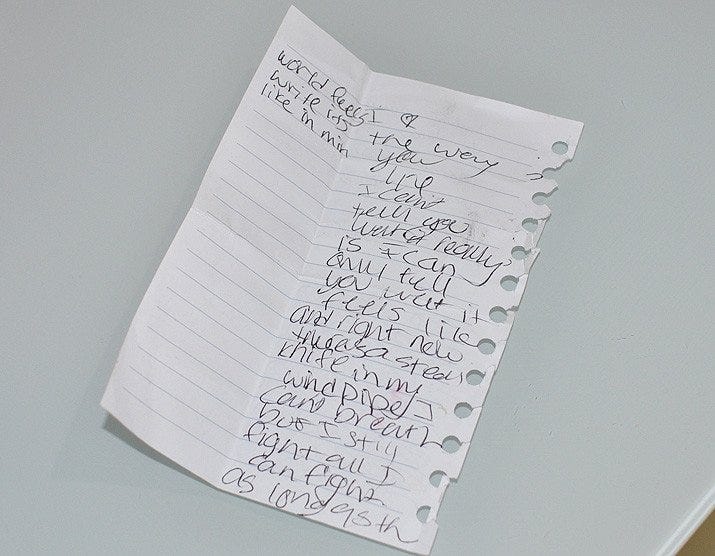 world feels
write its
like in min
I ♡
the way
you
lie
I cant
tell you
wat it really
is I can
only tell
you wat it
feels like
and right now
theres a steel
knife in my
windpipe I
cant breath
but I still
fight all I
can fight
as long as th